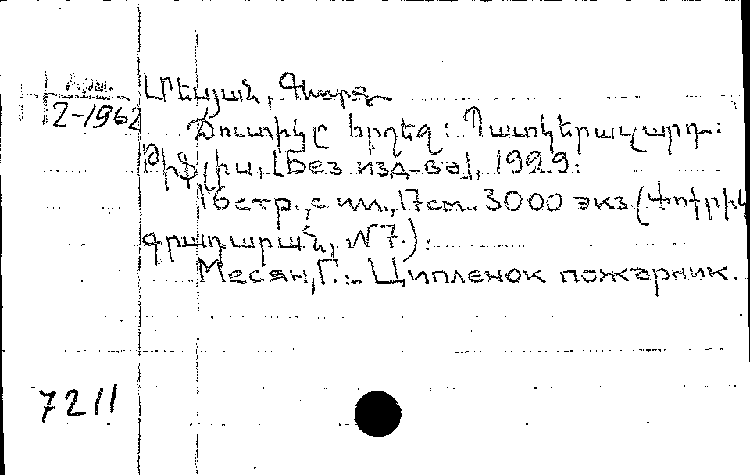 2-1962
Ճուտիկը հրդեհ: Պատկերազարդ:
Թիֆլիս, [Без изд-ва], 1929.
16 стр., с ил., 17 см. 3000 экз. (Փոքրիկ
գրադարան, N7.).
Месян, Г.. Ципленок пожарник.
7211